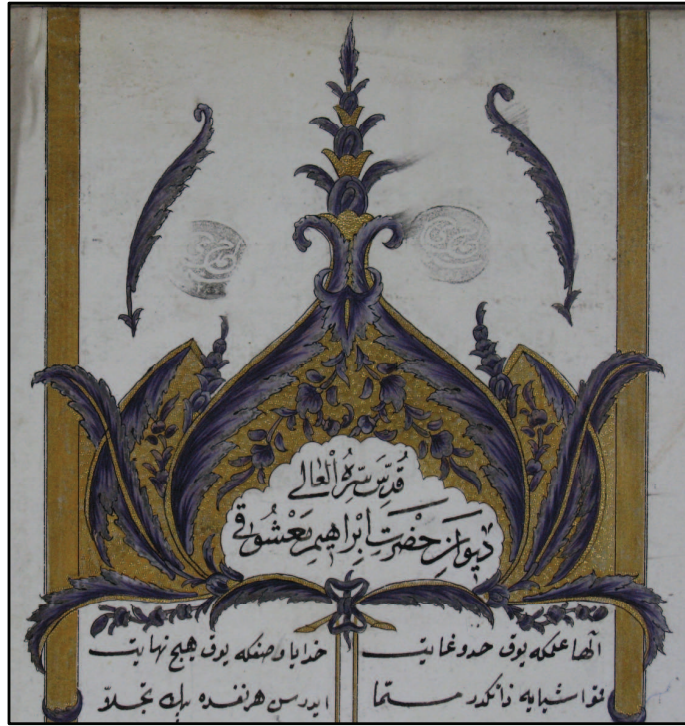 قُدِّسَ سِرُّهُ الْعَالِي
دیوانِ حَضْرَتِ اِبْرَاهِیمِ مَعْشُوقِی
الٓها علمكه یوق حد و غایت خدایا وصفكه یوق هیچ نهایت
اشیایه ذاتكدر مسمّا ایدرسن هر نفسده بیك تجلّا